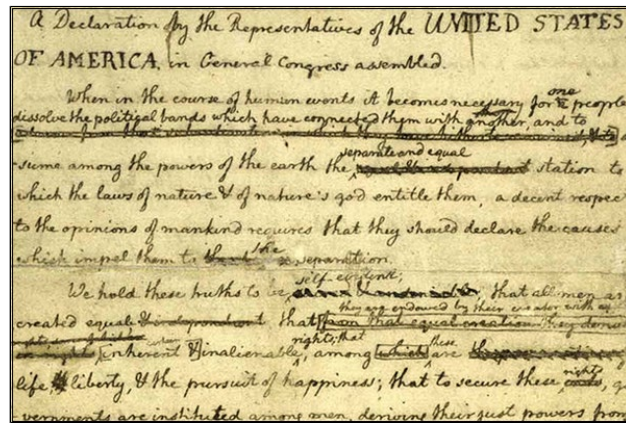 A Declaration by the Representatives of the UNITED STATES
OF AMERICA, in General Congress assembled.
When in the course of human events it becomes necessary for one people
dissolve the political bands which have connected them with another, and to
-sume among the powers of the earth the separate and equal station to
which the laws of nature & of nature's god entitle them, a decent respec
to the opinions of mankind requires that they should declare the causes
which impel them to the separation.
We hold these truths to be self-evident; that all men ar
they are endowed by their creator with
created equal that from that equal creation they
rights; that these
inherent & inalienable, among which are
life liberty, & the pursuit of happiness; that to secure these rights, go
-vernments are instituted among men, deriving their just powers from